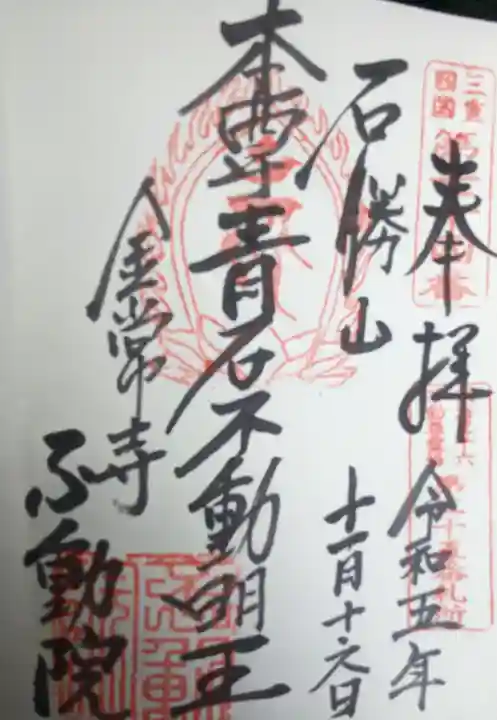 奉拝
令和五年
十一月十六日
石勝山
本尊青石不動明王
金常寺
不動院